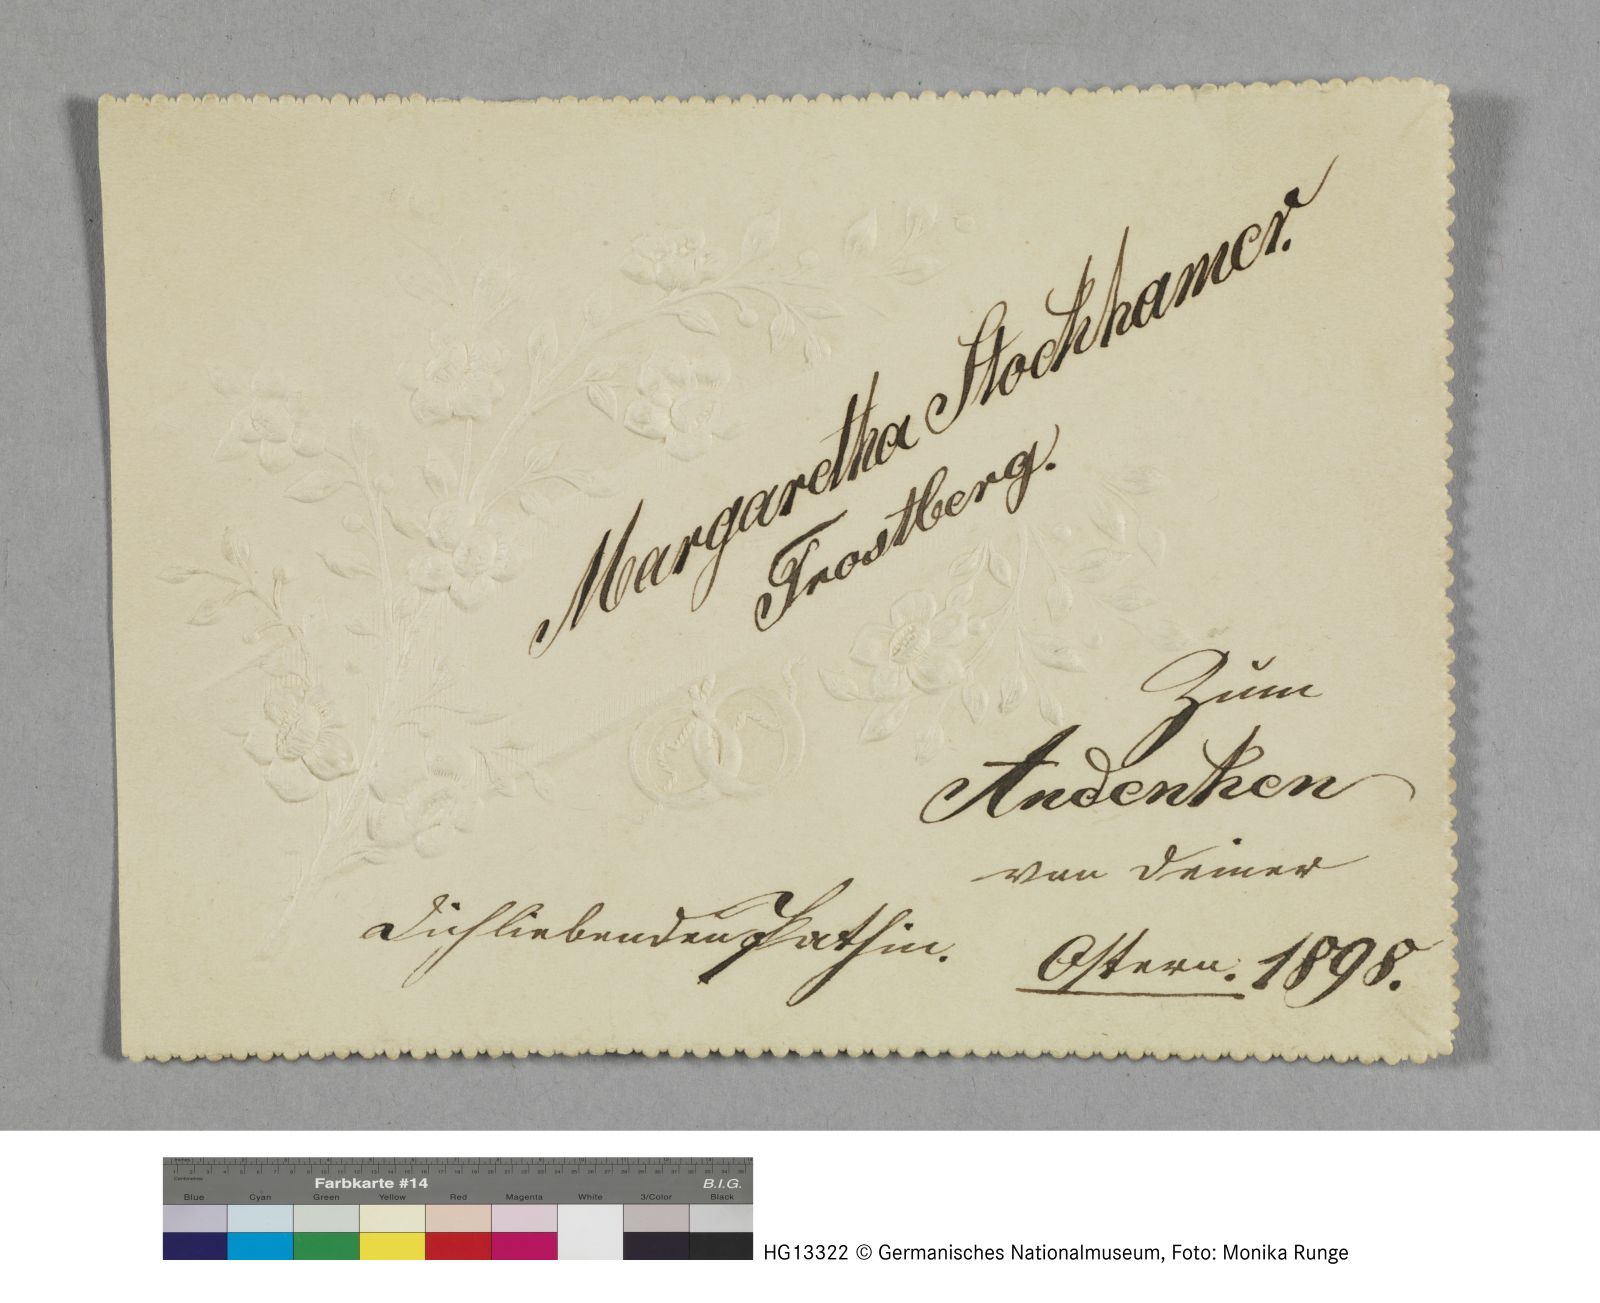 Margaretha Stockhamer.
Trostberg.
Zum
Andenken
von Deiner
Dichliebenden Pathin.
Ostern. 1898.
Farbkarte #14
B.I.G.
Blue Cyan Green Yellow Red Magenta White 3/Color Black
HG13322 © Germanisches Nationalmuseum, Foto: Monika Runge